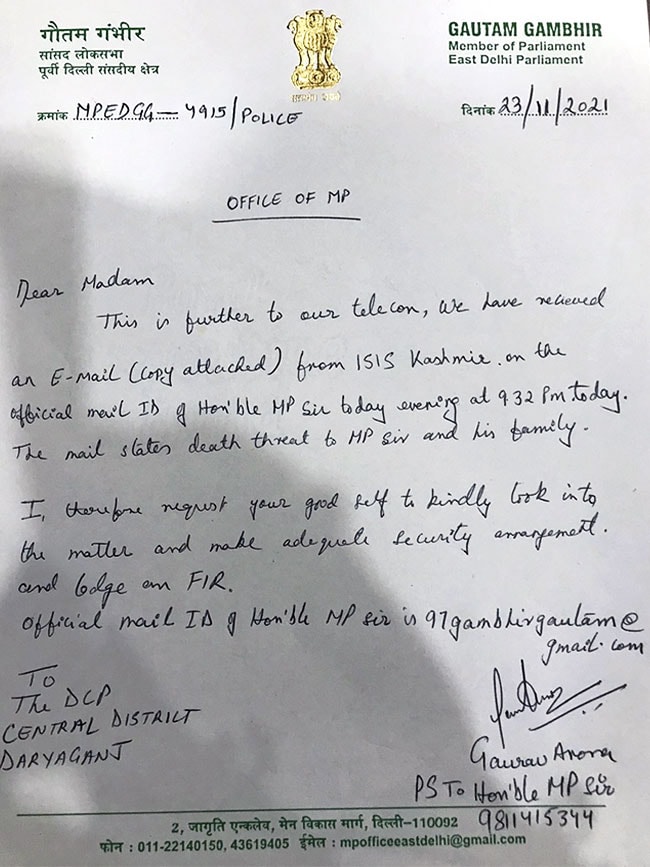 गौतम गंभीर
सांसद लोकसभा
पूर्वी दिल्ली संसदीय क्षेत्र
GAUTAM GAMBHIR
Member of Parliament
East Delhi Parliament
क्रमांक MPEDGG-4915/POLICE
दिनांक 23/11/2021
OFFICE OF MP
Dear Madam
This is further to our telecon, we have recieved
an E-Mail (copy attached) from ISIS Kashmir. on the
official mail ID of Hon'ble MP Sir today evening at 9 32 Pm today.
The mail states death threat to MP Sir and his family.
I, therefore request your good self to kindly look into
the matter and make adequate security arrangement.
and lodge an FIR.
Official mail ID of Hon'ble MP sir is 97gambhirgautam@
gmail.com
To
The DCP
CENTRAL DISTRICT
DARYAGANJ
Gaurav Arora
PS To Hon'ble MP Sir
9811415344
2, जागृति एन्कलेव, मेन विकास मार्ग, दिल्ली-110092
फोन : 011-22140150, 43619405 ईमेल : mpofficeeastdelhi@gmail.com